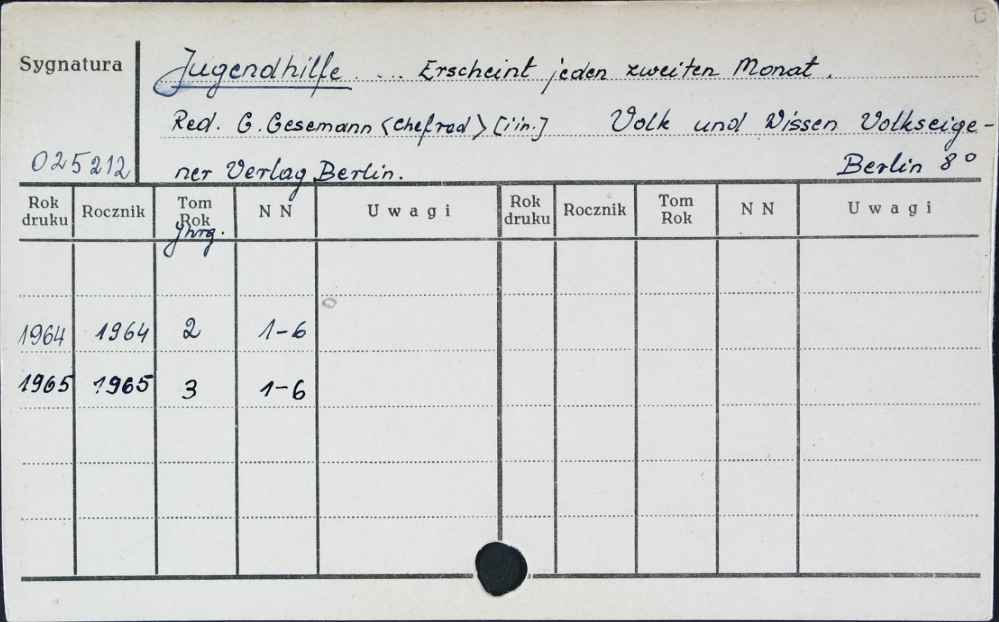 Sygnatura
Jugendhilfe ... Erscheint jeden zweiten Monat.
Red. G. Gesemann <Chefred> [i in.] Volk und Wissen Volkseige-
025212 ner Verlag Berlin. Berlin 8°
Rok druku Rocznik Tom Rok N N Uwagi Rok druku Rocznik Tom Rok N N Uwagi
Jhrg.
1964 1964 2 1-6
1965 1965 3 1-6